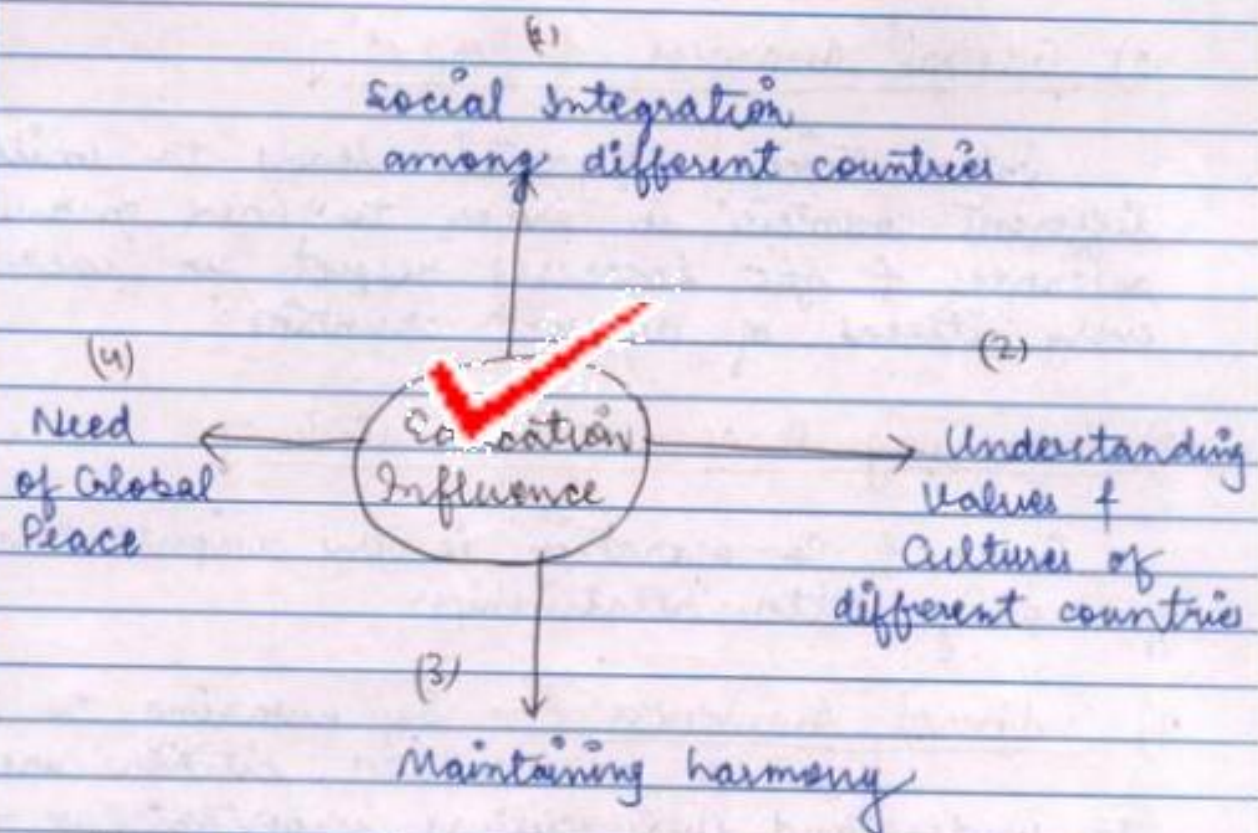 (1)
Social Integration
among different countries
(4)
Need
of Global
Peace
Education
Influence
(2)
Understanding
Values &
Cultures of
different countries
(3)
Maintaining harmony